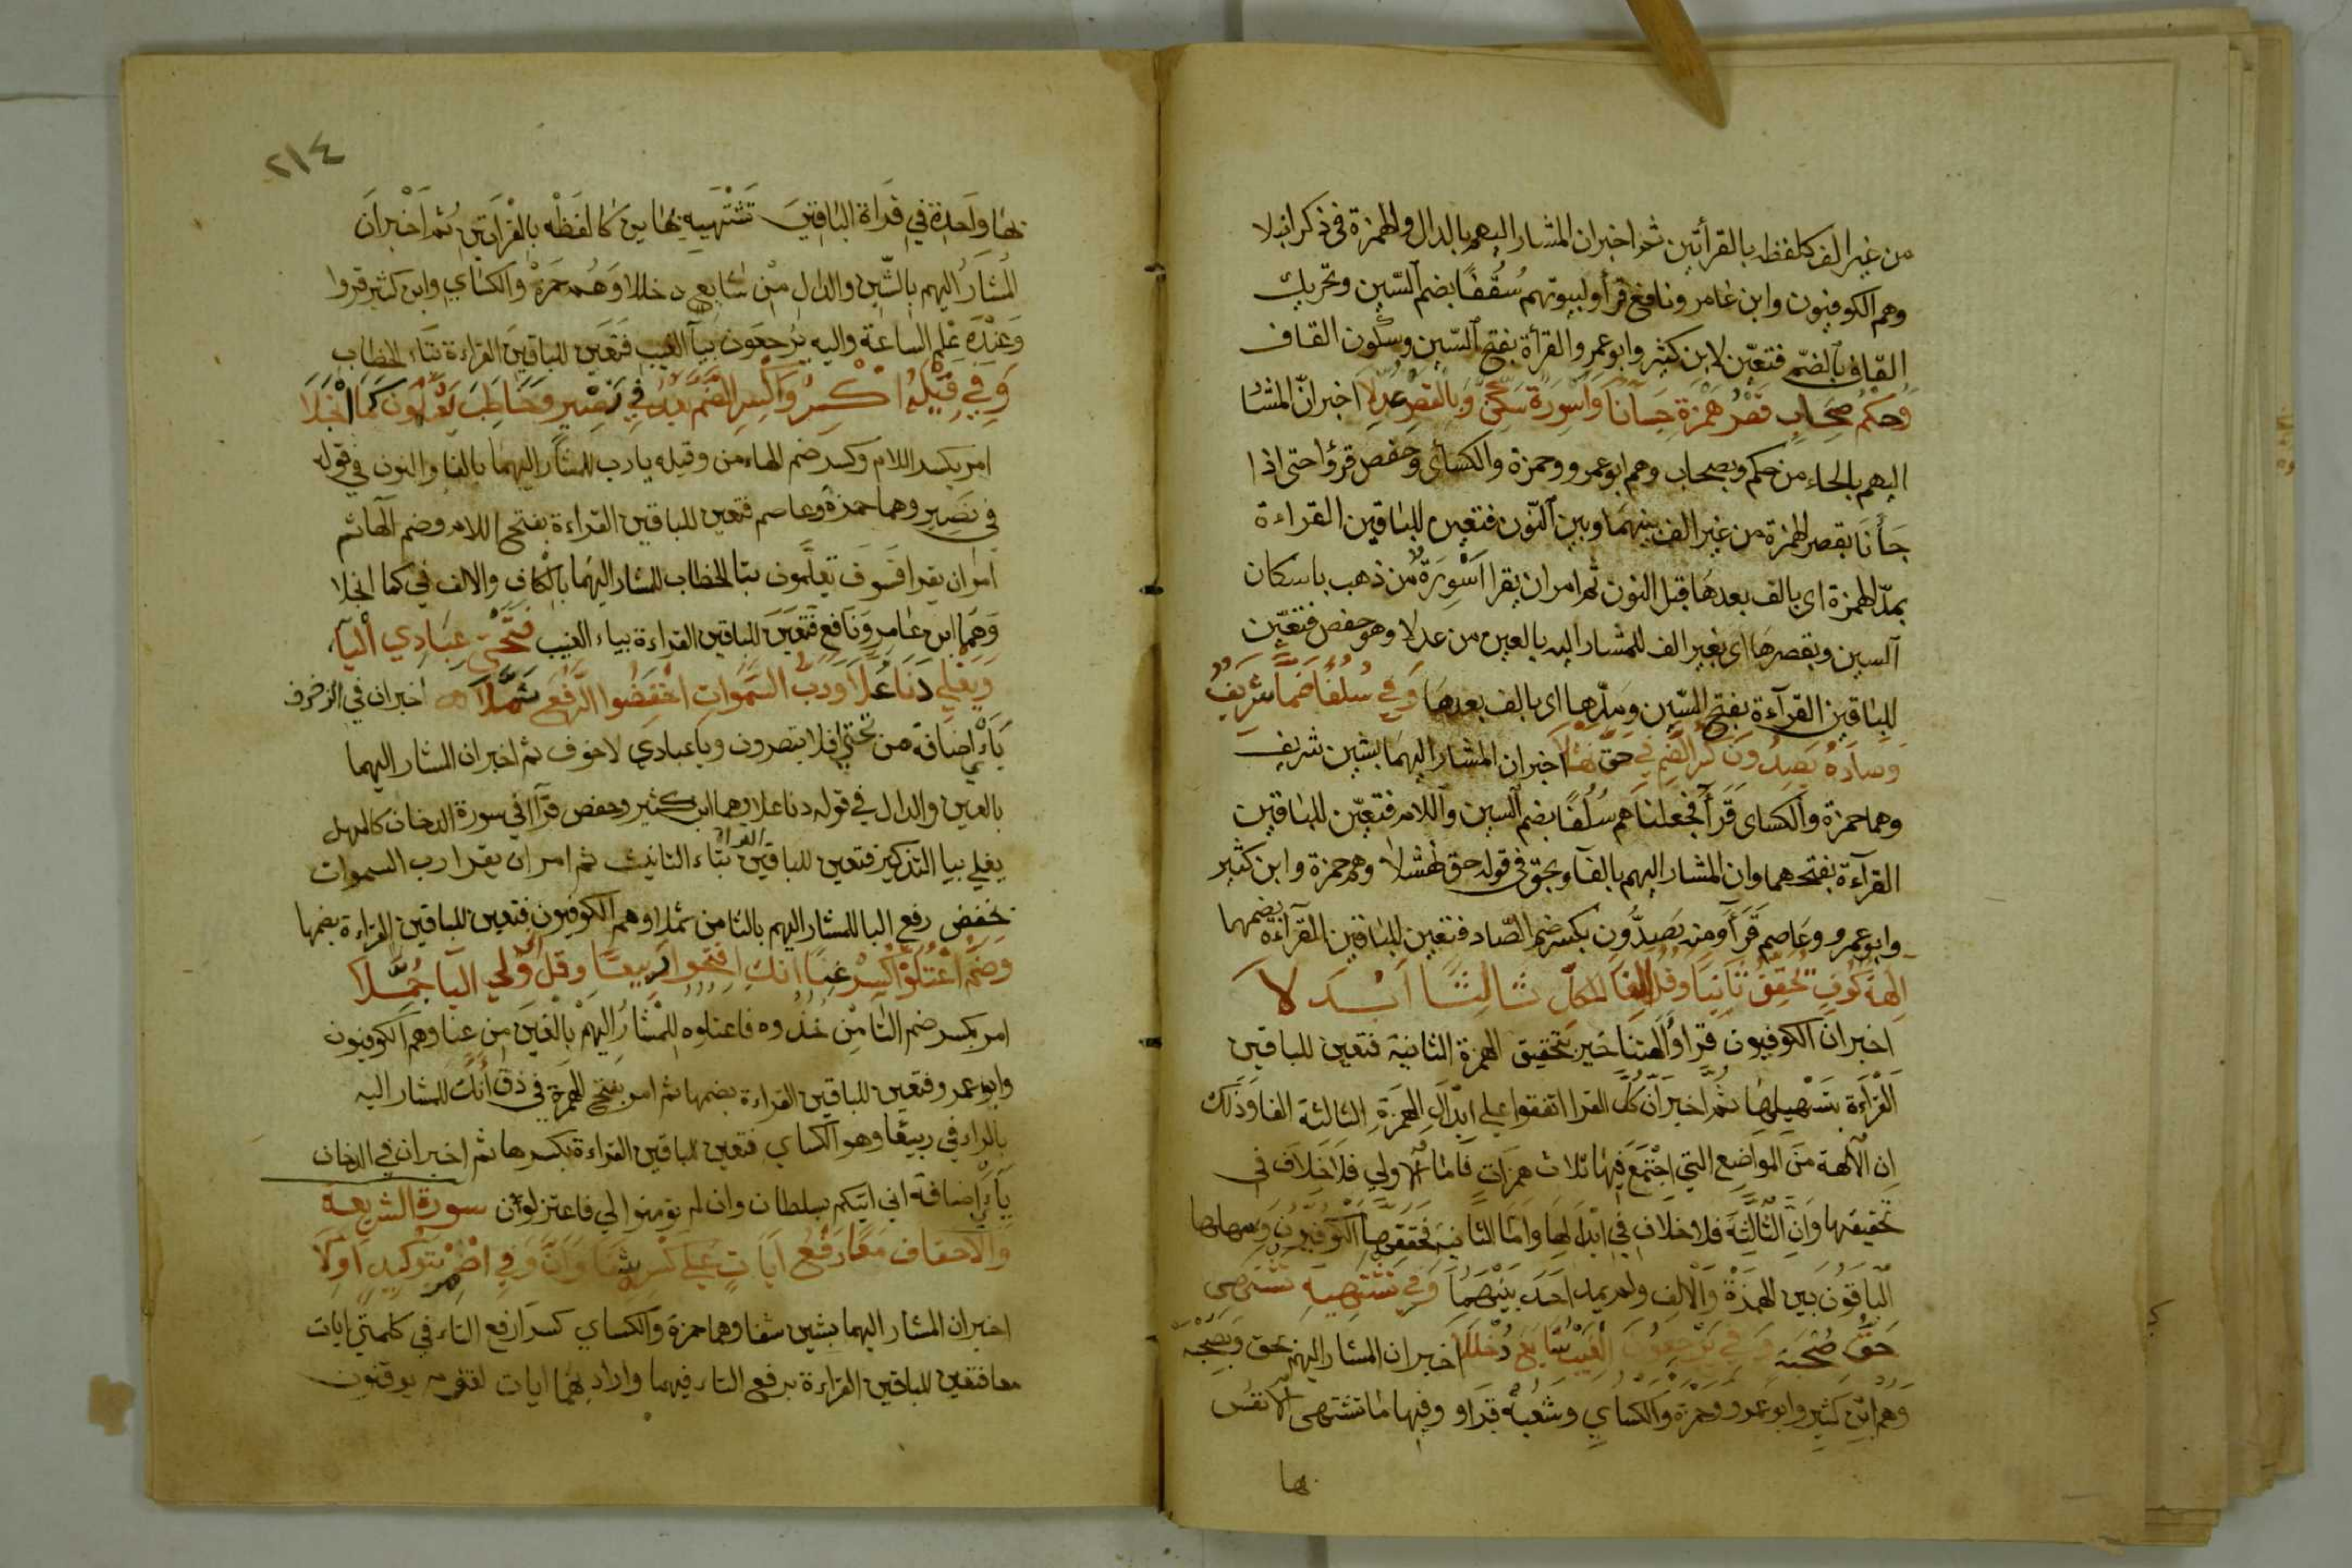 من غير الف كلفظه بالقرأتين ثم اخبر ان المشار اليهم بالدال والهمزة في ذكر انه لا
وهم الكوفيون وابن عامر ونافع قرأ ولبيوتهم سُقُفًا بضم السّين وتحريك
القاف بالضّم فتعيّن لابن كثير وابو عمرو القرأة بفتح السّين وسكون القاف
وَحُكْمُ صِحَابٍ قَصْرُ هَمْزَةِ جَاءَنَا وَأَسْوِرَةٌ سَكِّنْ وَبِالْقَصْرِ عُدِّلَا اخبر انّ المشا
اليهم بالحاء من حكم وبصحاب وهم ابو عمرو وحمزة والكسائى وحفص قرؤا حتى اذا
جَأَنَا بقصر الهمزة من غير الف بينهما وبين النّون فتعين للباقين القراءة
بمدّ الهمزة اى بالف بعدها قبل النون ثم امر ان يقرا اَسْوِرَةٌ من ذهب باسكان
السين وبقصرها اى بغير الف للمشار اليه بالعين من عدلا وهو حفص فتعيّن
للباقين القرآءة بفتح السّين ومدّها اى بالف بعدها وَفِي سُلُفًا ضَمَّا شَرِيفٍ
وَصَادُهُ يَصِدُّونَ كَسْرُ الضَّمِّ فِي حَقِّ نَهْشَلَا اخبر ان المشار اليهما بشين شريف
وهما حمزة والكساى قَرَأَ فجعلناهم سُلُفًا بضم السين واللام فتعيّن للباقين
القرآءة بفتحهما وان المشار اليهم بالفآ وبحق في قوله حق نهشلا وهم حمزة وابن كثير
وابو عمرو وعَاصم قَرَأَ ومنه يَصِدُّون بكسر ضم الصّاد فتعين للباقين القرآءة بضمها
ءالِهَةٌ كُوفٍ يُحَقِّقُ ثَانِيًا وَقُلْ أَلِفًا لِلْكُلِّ ثَالِثًا اُبْدِلَا
اخبر ان الكوفيون قراوُا الهتنا خير بتحقيق الهمزة الثانية فتعين للباقين
القَرَاءَة بتَسْهِيلِهَا ثُمَّ اخبَر اَنّ كُلّ القرا اتفقوا على ابْدَالِ الهَمزَةِ الثالثة الفا وَذَلك
ان الآلهة مِنَ المَوَاضِع التي اجْتَمَعَ فِيهَا ثلاث همزَات فَامّا الاولي فلا خِلَاف في
تحقيقها وَانّ الثّالِثَة فلا خلاف في ابْدالهَا وامّا الثانية فحققهَا الكوفيُّون وَسهلها
البَاقُونَ بَين الهَمْزَة وَالالِف ولم يمد احَد بَيْنهمَا وَفِي تَشْتَهِيهِ تَشْتَهِي
حَقُّ صُحْبَةٍ وَفِي يُرْجَعُونَ الْغَيْبُ شَايَعَ دُخْلُلَا اخبر ان المشار اليهم بحق وَبصُحْبَة
وَهم ابنُ كثير وابو عَمرو وحمزة وَالكسَاي وشَعْبَة قَرَاو وفيها مَا تشتهى الانفس
بها
٢١٤
بهَا واحدة في قرَاة البَاقِينَ تَشْتَهِيهِ بهَا ين كما لفَظَه بِالقرَاتين ثم اَخْبَر اَن
المشارُ اليهم بِالشّين والدّال مِن شايع دخللا وَهُم حَمزَة والكسَاي وابن كثير قروا
وَعِندَه عِلم السَاعَة واليه يُرجعَون بيآ الغيب فتعَين للباقين القراءة بتاء الخطاب
وَفِي قِيلِهُ اكْسِرْ وَاكْسِرِ الضَّمَّ بَعْدُ فِي نَصِيرٍ وَخَاطِبْ يَعْلَمُونَ كَمَا انْجَلَا
امر بكسر اللام وكسر ضم الهاء من وقيله يارب للمشار اليهما بالفا والنون في قوله
في نصير وهما حمزة وعاصم فتعين للباقين القراءة بفتح اللام وضم الهاء ثم
امر ان يقرا فَسوفَ تَعلمون بتا الخطاب للمشار اليهما بالكاف والالف في كما انجلا
وَهمَا ابن عامِر وَنَافع فتعَين للباقين القراءة بياء الغيب بِتَحْتِي عِبَادِي الْيَا
وَيَغْلِي دَنَا عُلًا وَرَبُّ السَّمَوَاتِ اخْفِضُوا الرَّفْعَ ثُمَّلَا اخبر ان في الزخرف
يَاءَيْ اضَافة من تحتي افلا تبصرون ويا عبادي لا خوف ثم اخبر ان المشار اليهما
بالعين والدال في قوله دنا علا وهما ابن كثير وحفص قرآ في سورة الدخان كالمهل
يغلي بيا التذكير فتعين للباقين القراة بتاء التانيث ثم امر ان يقرا رب السموات
بخفض رفع البا للمشار اليهم بالثا من ثملا وهم الكوفيون فتعين للباقين القراءة بضمها
وَضَمَّ اعْتُلُوهُ اكْسِرْ غِنًا انَّكَ افْتَحُوا رَبِيعًا وَقُلْ إِنِّي وَلِي الْيَا حُمِّلَا
امر بكسر ضم التا مِن خذُوه فاعتلوه للمشارُ اليهم بالغين مِن غنا وهم الكوفيون
وابو عمرو فتعين للباقين القراءة بضمها ثم امر بفتح الهمزة في ذق انَّك للمشار اليه
بالراء في ربيعا وهو الكساي فتعين للباقين القراءة بكسرها ثم اخبر ان في الدخان
يَاءَيْ اضافة اني اتيكم بسلطان وان لم تومنوا لي فاعتزلون سورة الشريعة
والاحقاف مَعًا رَفْعُ ايَاتٍ عَلَى كَسْرِهِ شَفَا وَإِنَّ وَفِي أَضْمِرْ بِتَوْكِيدٍ أَوِّلَا
اخبر ان المشار اليهما بشين شفا وهما حمزة والكساي كسرا رفع التاء في كلمتي ايات
معا فتعين للباقين القراءة برفع التاء فيهما واراد بهما ايات لقوم يوقنون